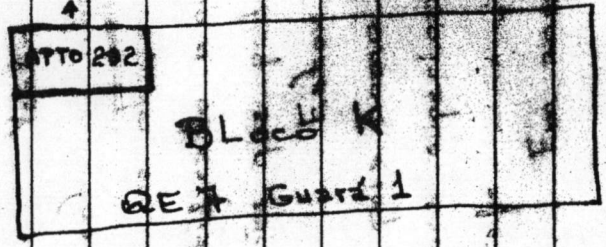 APTO 202
BLoco K
QE 7 Guará 1